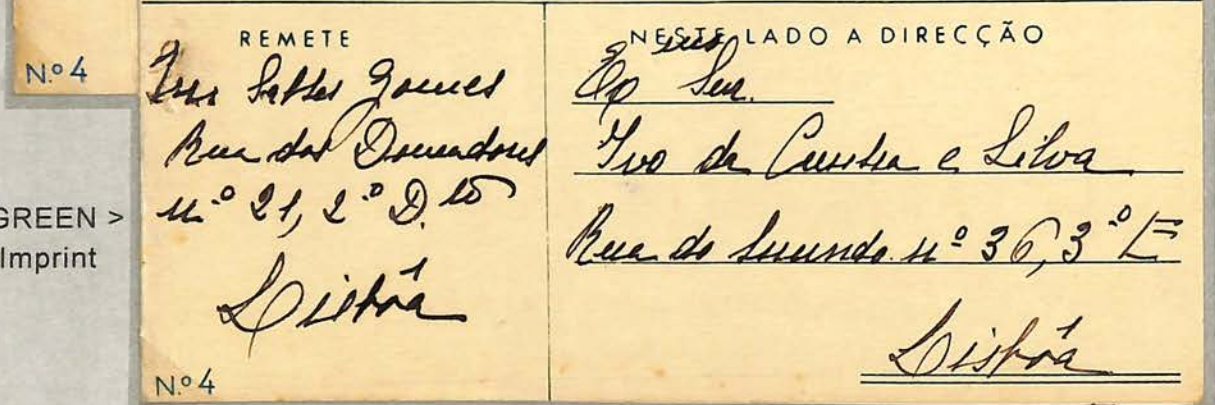 N.º 4
GREEN >
Imprint
REMETE
Gomes
Rua dos Douradores
n.º 21, 2.º D.to
Lisbôa
N.º 4
NESTE LADO A DIRECÇÃO
Exmo Snr.
Ivo da Cunha e Silva
Rua do nº 36, 3.º E
Lisbôa